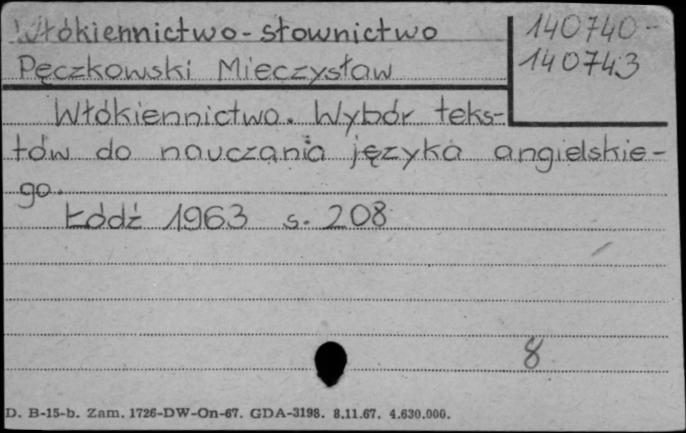 Włókiennictwo-słownictwo
140740-
140743
Pęczkowski Mieczysław
Włókiennictwo. Wybór teks-
tów do nauczania języka angielskie-
go.
Łódź 1963 s. 208
8
D. B-15-b. Zam. 1726-DW-On-67. GDA-3198. 8.11.67. 4.630.000.